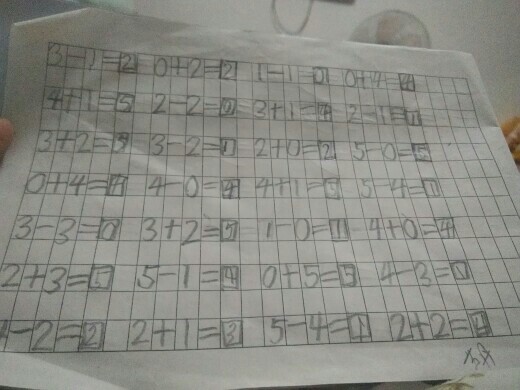 3-1=2 0+2=2 1-1=0 0+4=4
4+1=5 2-2=0 3+1=4 2-1=1
3+2=5 3-2=1 2+0=2 5-0=5
0+4=4 4-0=4 4+1=5 5-4=1
3-3=0 3+2=5 1-0=1 4+0=4
2+3=5 5-1=4 0+5=5 4-3=
-2=2 2+1=3 5-4=1 2+2=